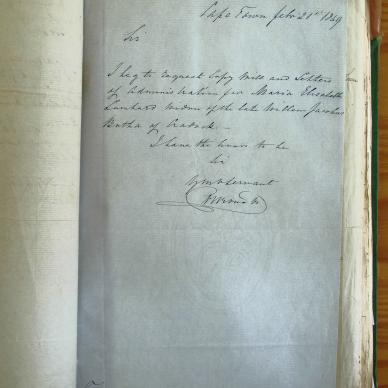 Cape Town feby 21st 1849
Sir
I beg to request Copy Will and Letters
of Administration for Maria Elizabeth
Lombard widow of the late Willem Jacobus
Botha of Cradock. –
I have the honor to be
Sir
Servant